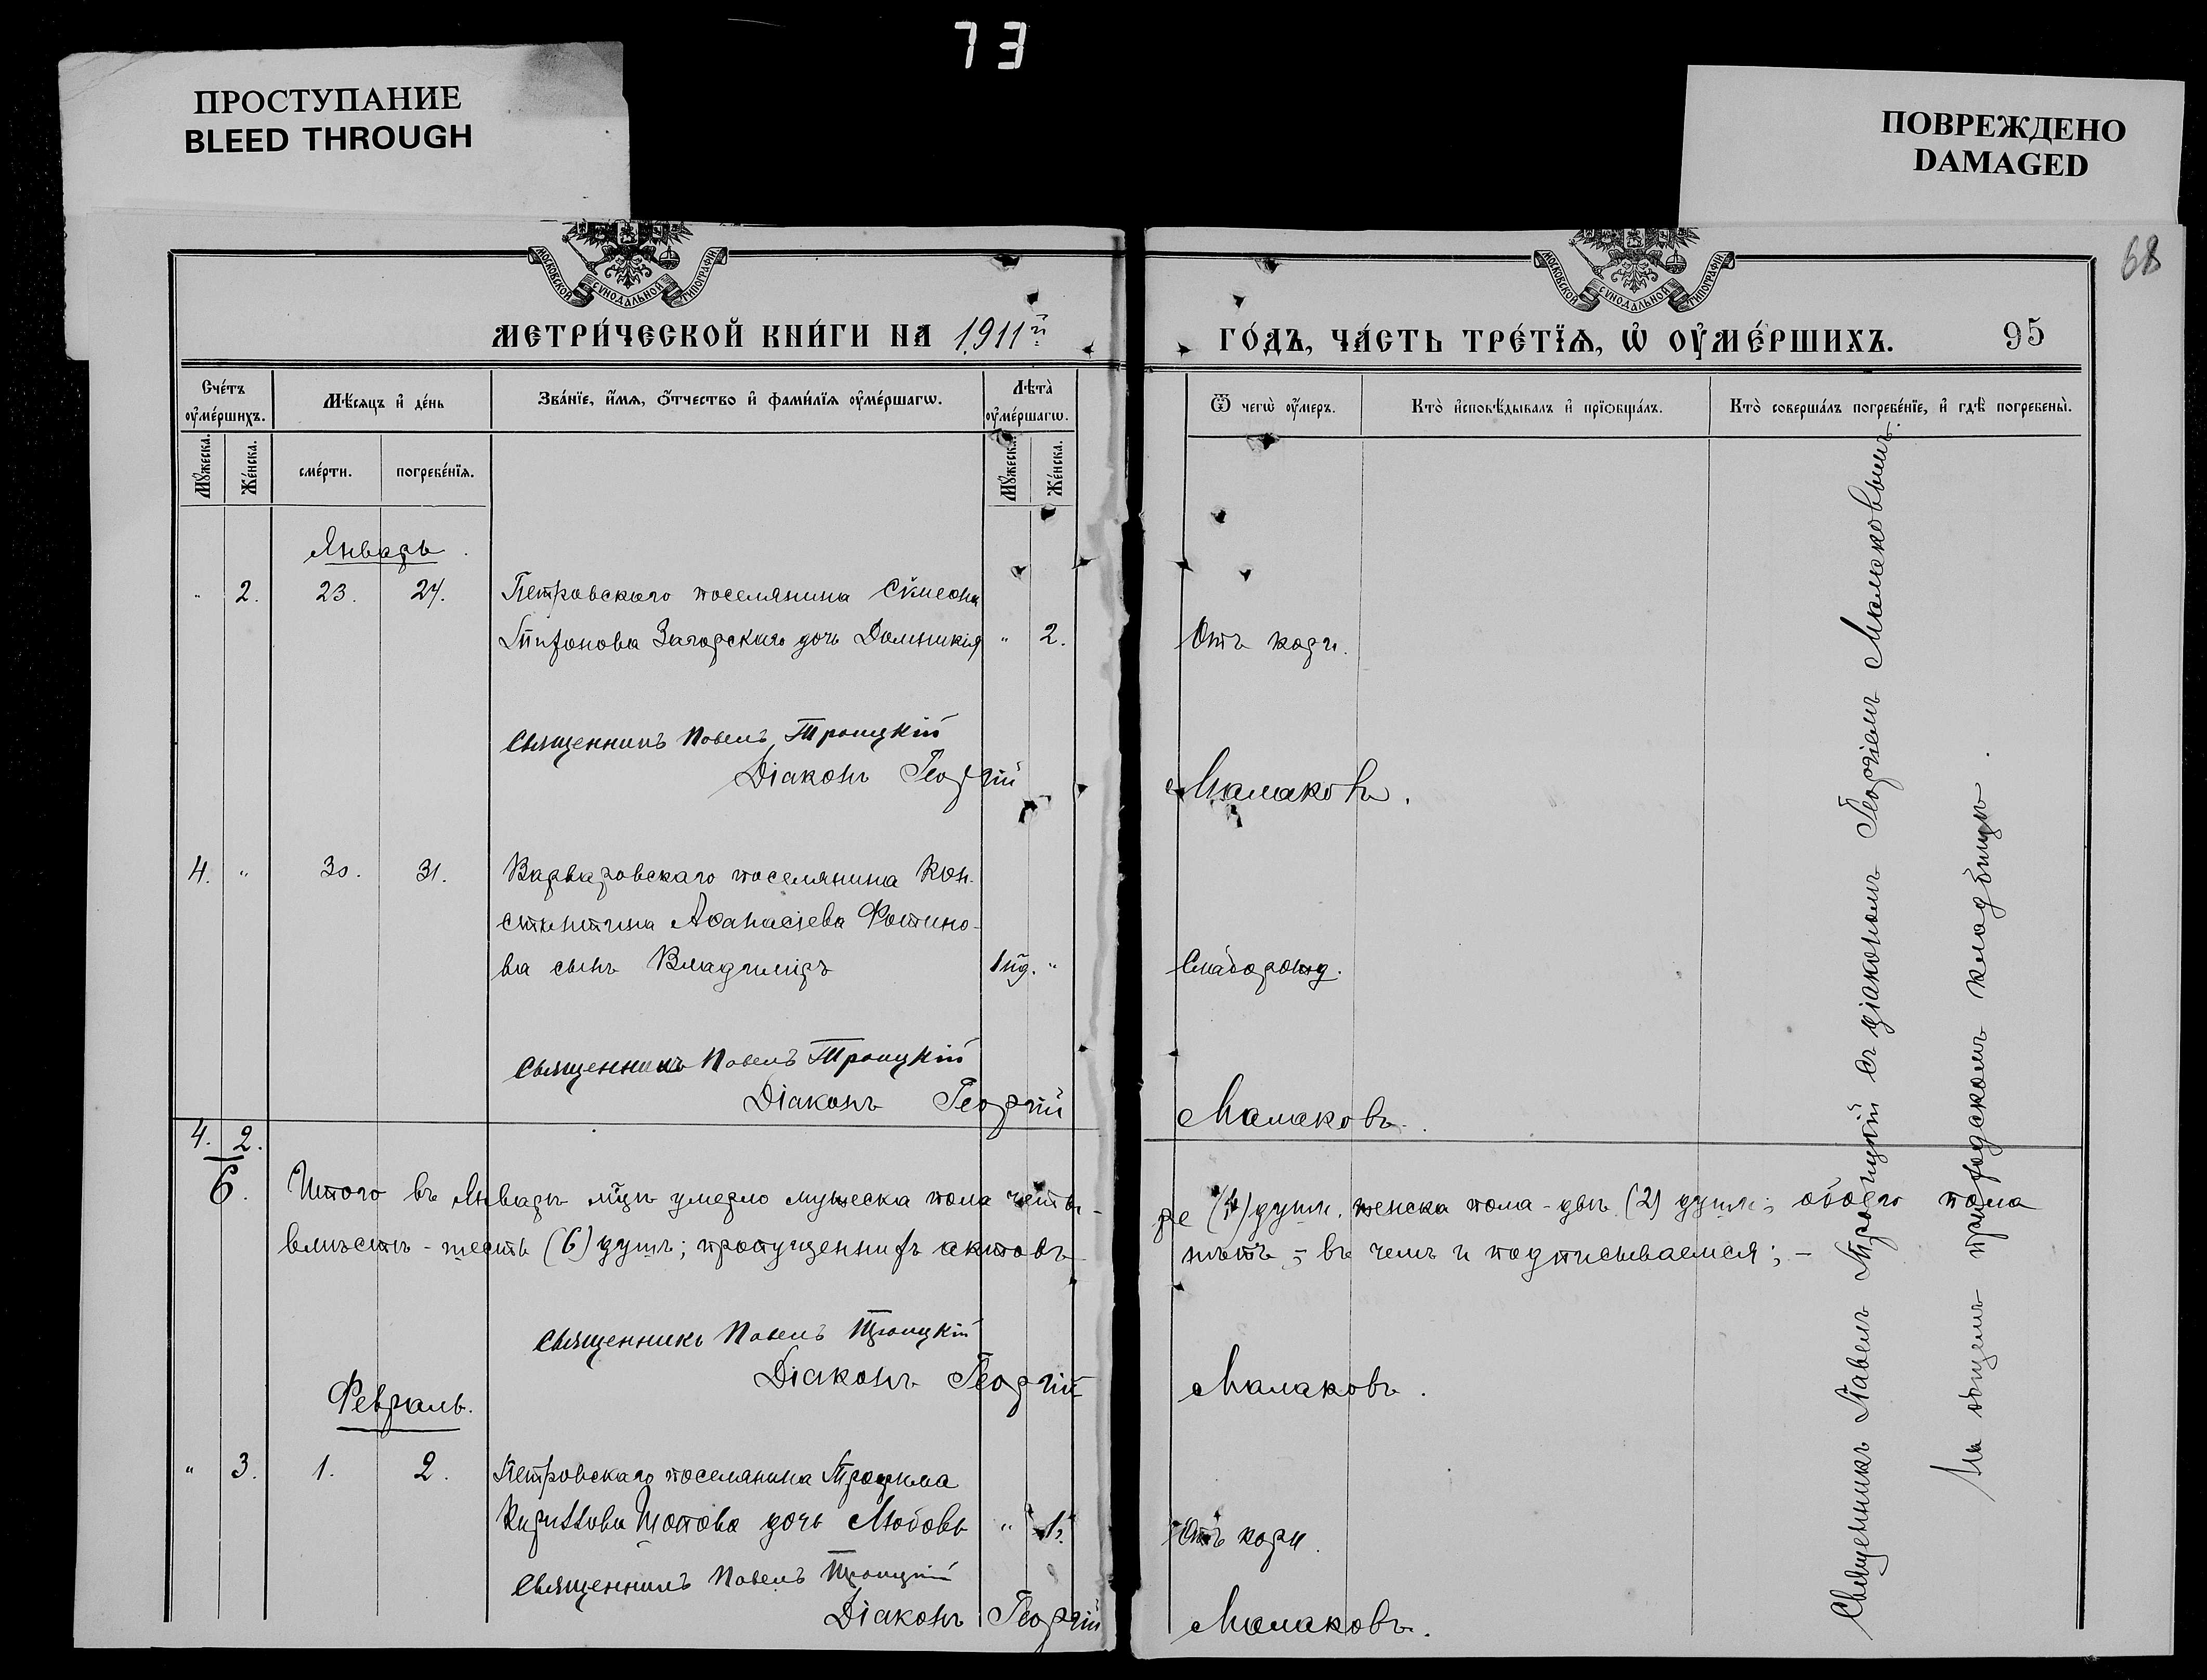 73
ПРОСТУПАНИЕ
BLEED THROUGH
ПОВРЕЖДЕНО
DAMAGED
68
МОСКОВСКОЙ СУНОДАЛЬНОЙ ТИПОГРАФІИ
МОСКОВСКОЙ СУНОДАЛЬНОЙ ТИПОГРАФІИ
МЕТРИ́ЧЕСКОЙ КНИ́ГИ НА 1911й
ГО́ДЪ, ЧА́СТЬ ТРЕ́ТЇѦ, Ѡ҆ ОУ҆МЕ́РШИХЪ. 95
Сче́тъ оу҆ме́ршихъ.
Мѣ́сяцъ и҆ де́нь
Зва́нїе, и҆́мѧ, ѻ҆́тчество и҆ фами́лїѧ оу҆ме́ршагѡ.
Лѣта̀ оу҆ме́ршагѡ.
Ѿ чегѡ̀ оу҆́меръ.
Кто̀ и҆сповѣ́дывалъ и҆ прїѡбща́лъ.
Кто̀ соверша́лъ погребе́нїе, и҆ гдѣ̀ погребены̀.
Мꙋ́жеска.
Же́нска.
сме́рти.
погребе́нїѧ.
Мꙋ́жеска.
Же́нска.
Январь.
" 2. 23. 24. Петровскаго поселянина Сѵмеона
Тифонова Загорскаго дочь Домникія " 2. Отъ кори.
Священникъ Павелъ Троицкій
Діаконъ Георгій Малаковъ.
4. " 30. 31. Варваровскаго поселянина Кон-
стантина Аѳанасіева Фотино-
ва сынъ Владиміръ 1 нд. " Слаборожд.
Священникъ Павелъ Троицкій
Діаконъ Георгій Малаковъ.
4. 2.
6. Итого въ Январѣ мцѣ умерло мужеска пола четы-
ре (4) души, женска пола - двѣ (2) души; обоего пола
вмѣстѣ - шесть (6) душъ; пропущенныхъ актовъ
нѣтъ; - въ чемъ и подписываемся; -
Священникъ Павелъ Троицкій
Діаконъ Георгій Малаковъ.
Февраль.
" 3. 1. 2. Петровскаго поселянина Трофима
Кириллова Топова дочь Любовь " 1. Отъ кори.
Священникъ Павелъ Троицкій
Діаконъ Георгій Малаковъ.
Священникъ Павелъ Троицкій съ діакономъ Георгіемъ Малаковымъ.
На общемъ приходскомъ кладбищѣ.